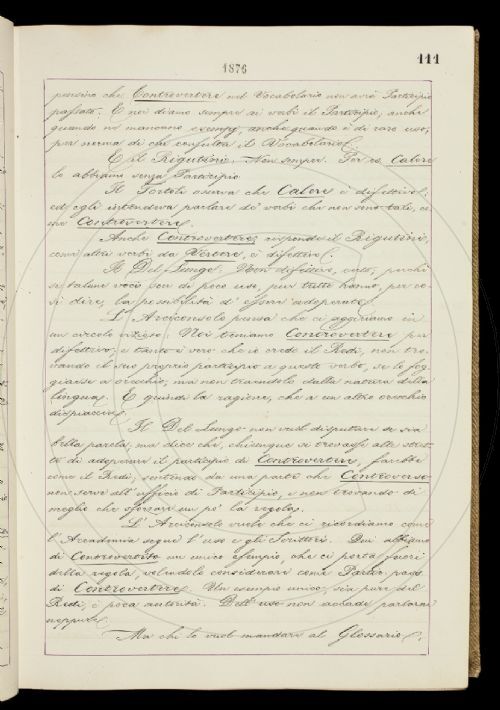 111
1876
pensino che Controvertere nel Vocabolario non avrà Participio
passato. E noi diamo sempre ai verbi il Participio, anche
quando ne mancano esempj, anche quando è di raro uso,
per norma di chi consulta il Vocabolario.
E il Rigutini. Non sempre. Per es. Calere
lo abbiamo senza Participio.
Il Tortoli osserva che Calere è difettivo,
ed egli intendeva parlare de' verbi che non sono tali, co
me Controvertere.
Anche Controvertere, risponde il Rigutini,
come altri verbi da Vertere, è difettivo.
Il Del Lungo. Non difettivo, certo, perchè
se talune voci son di poco uso, pur tutte hanno, per co-
sì dire, la possibilità d'essere adoperate.
L'Arciconsolo pensa che ci aggiriamo in
un circolo vizioso. Noi teniamo Controvertere per
difettivo, e tanto è vero che io credo il Redi, non tro-
vando il suo proprio participio a questo verbo, se lo fog-
giasse a orecchio, ma non traendolo dalla natura della
lingua. E quindi la ragione, che a un altro orecchio
dispiaccia.
Il Del Lungo non vuol disputare se sia
bella parola, ma dice che, chiunque si trovasse alle stret-
te di adoperare il participio di Controvertere, farebbe
come il Redi, sentendo da una parte che Controverso
non serve all'ufficio di Participio, e non trovando di
meglio che sforzare un po' la regola.
L'Arciconsolo vuole che ci ricordiamo come
l'Accademia segue l'uso e gli Scrittori. Qui abbiamo
di Controvertito un unico esempio, che ci porta fuori
della regola, volendolo considerare come Partic. pass.
di Controvertere. Un esempio unico, sia pure del
Redi, è poca autorità. Dell'uso non accade parlarne
neppure.
Ma chi lo vuol mandare al Glossario,